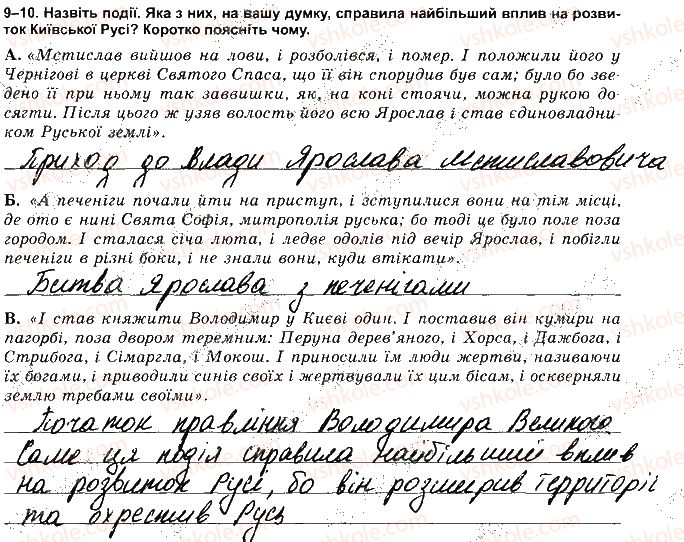 9–10. Назвіть події. Яка з них, на вашу думку, справила найбільший вплив на розви-
ток Київської Русі? Коротко поясніть чому.
А. «Мстислав вийшов на лови, і розболівся, і помер. І положили його у
Чернігові в церкві Святого Спаса, що її він спорудив був сам; було бо зве-
дено її при ньому так заввишки, як, на коні стоячи, можна рукою до-
сягти. Після цього ж узяв волость його всю Ярослав і став єдиновладни-
ком Руської землі».
Приход до влади Ярослава Мстиславовича
Б. «А печеніги почали йти на приступ, і зступилися вони на тім місці,
де ото є нині Свята Софія, митрополія руська; бо тоді це було поле поза
городом. І сталася січа люта, і ледве одолів під вечір Ярослав, і побігли
печеніги в різні боки, і не знали вони, куди втікати».
Битва Ярослава з печенігами
В. «І став княжити Володимир у Києві один. І поставив він кумири на
пагорбі, поза двором теремним: Перуна дерев'яного, і Хорса, і Дажбога, і
Стрибога, і Сімаргла, і Мокош. І приносили їм люди жертви, називаючи
їх богами, і приводили синів своїх і жертвували їх цим бісам, і оскверняли
землю требами своїми».
Початок правління Володимира Великого
Саме ця подія справила найбільший вплив
на розвиток Русі, бо він розширив территорії
та охрестив Русь